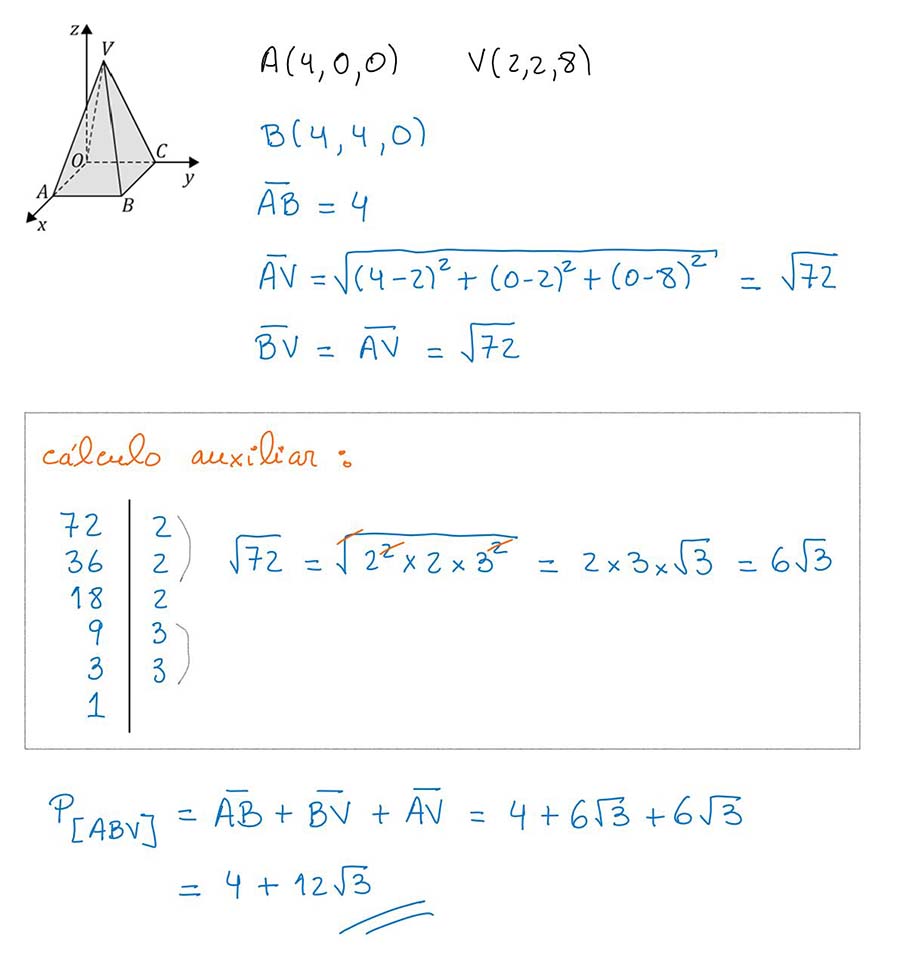 z
V
O
C
y
A
B
x
A(4,0,0) V(2,2,8)
B(4,4,0)
A̅B̅ = 4
A̅V̅ = √((4-2)² + (0-2)² + (0-8)²) = √72
B̅V̅ = A̅V̅ = √72
cálculo auxiliar :
72 | 2
36 | 2
√72 = √(2² × 2 × 3²) = 2 × 3 × √3 = 6√3
18 | 2
9 | 3
3 | 3
1 |
P[ABV] = A̅B̅ + B̅V̅ + A̅V̅ = 4 + 6√3 + 6√3
= 4 + 12√3